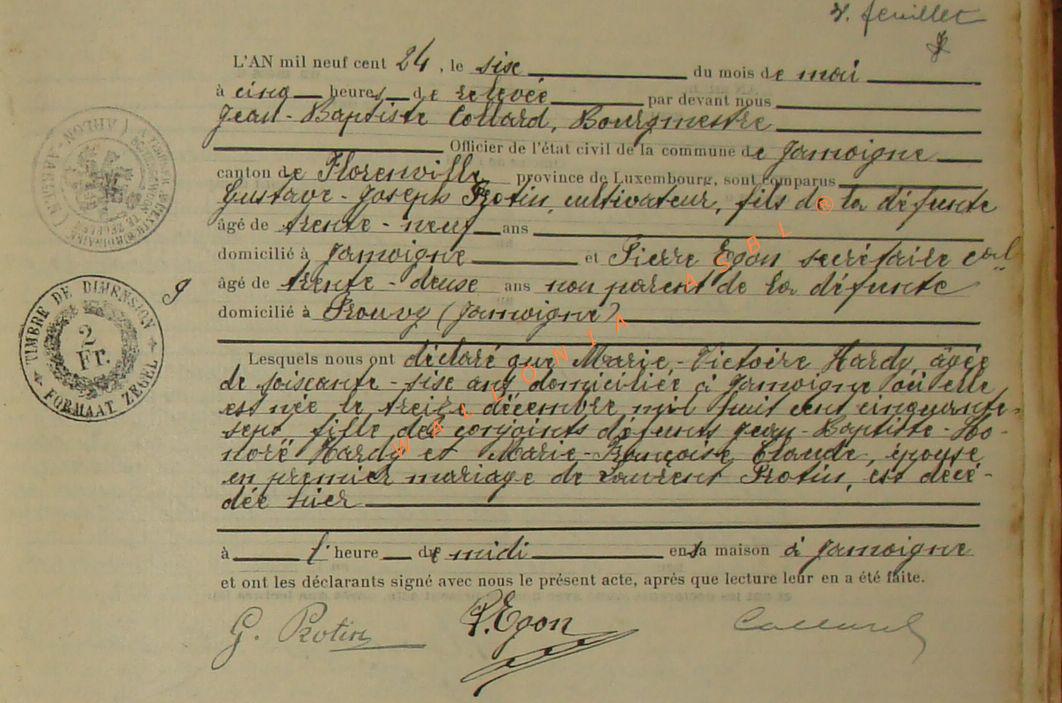 7. feuillet
L'AN mil neuf cent 24, le sixe du mois de mai
à cinq heures de relevée par devant nous
Jean-Baptiste Collard, Bourgmestre
Officier de l'état civil de la commune de Jamoigne
canton de Florenville province de Luxembourg, sont comparus
Gustave-Joseph Rotin, cultivateur, fils de la défunte
âgé de trente-neuf ans
domicilié à Jamoigne et Pierre Egon secrétaire cal
âgé de trente-deuxe ans non parent de la défunte
domicilié à Prouvy (Jamoigne)
Lesquels nous ont déclaré que Marie-Victoire Hardy âgée
de soixante-six ans domiciliée à Jamoigne où elle
est née le treize décembre mil huit cent cinquante-
sept fille des conjoints défunts Jean-Baptiste-Ho-
noré Hardy et Marie-Françoise Claude, épouse
en premier mariage de Laurent Rotin, est décé-
dée hier
à l'heure de midi en sa maison à Jamoigne
et ont les déclarants signé avec nous le présent acte, après que lecture leur en a été faite.
G. Rotin P. Egon Collard
TIMBRE DE DIMENSION
2
Fr.
FORMAAT ZEGEL
WALLONIA ASBL